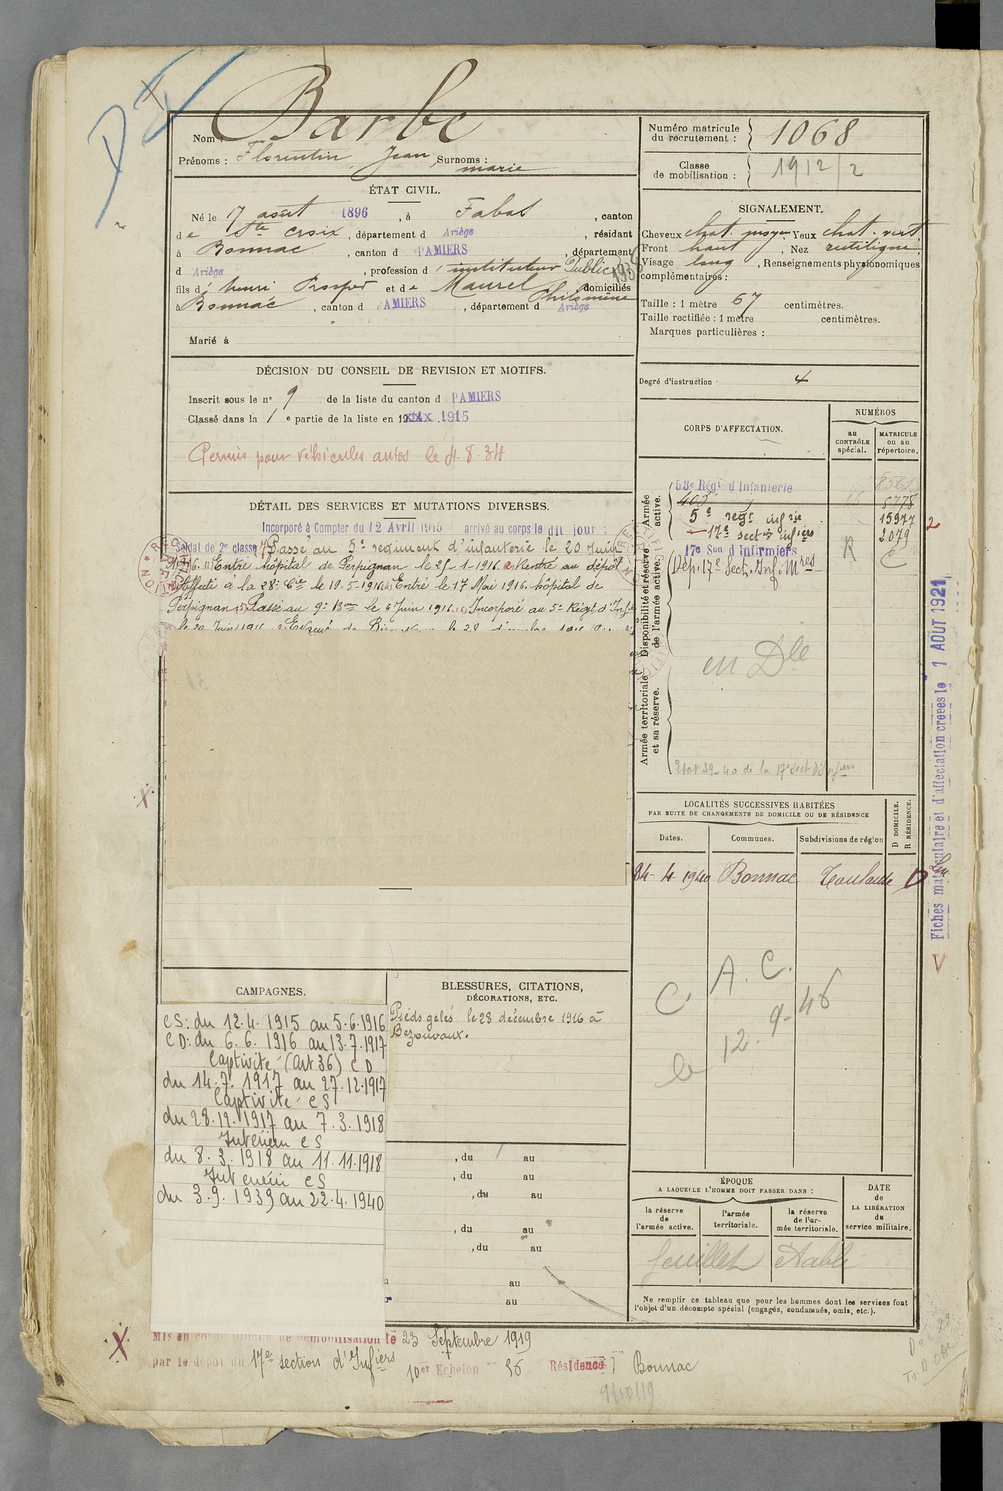 Barbe
Nom :
Prénoms : Florentin, Jean, Surnoms :
marie
ÉTAT CIVIL.
Né le 17 août 1896, à Fabas, canton
de Ste Croix, département d Ariège, résidant
à Bonnac, canton d PAMIERS, département
d Ariège, profession d' instituteur Public
fils d' henri Prosper et de Maurel Philomène domiciliés
à Bonnac, canton d PAMIERS, département d Ariège
Marié à
Numéro matricule
du recrutement : 1068
Classe
de mobilisation : 1912/2
SIGNALEMENT.
Cheveux chat. moyen Yeux chat. vert
Front haut, Nez rectiligne
Visage long, Renseignements physionomiques
complémentaires :
Taille : 1 mètre 67 centimètres.
Taille rectifiée : 1 mètre centimètres.
Marques particulières :
Degré d'instruction : 4
DÉCISION DU CONSEIL DE REVISION ET MOTIFS.
Inscrit sous le n° 9 de la liste du canton d PAMIERS
Classé dans la 1e partie de la liste en 1915
Permis pour véhicules autos le 4.8.34
DÉTAIL DES SERVICES ET MUTATIONS DIVERSES.
Incorporé à Compter du 12 Avril 1915 arrivé au corps le dit jour :
Soldat de 2e classe Passé au 5e regiment d'infanterie le 20 Juin
Entré hôpital de Perpignan le 25-1-1916. Rentré au dépôt
Affecté à la 28e Cie le 19-5-1916 Entré le 17 Mai 1916 hôpital de
Perpignan Passé au 9e Bon le 6 Juin 1916. Incorporé au 5e Régt d'Inf
le 20 Juin 1916
CORPS D'AFFECTATION.
NUMÉROS
au
CONTRÔLE
spécial.
MATRICULE
ou au
répertoire.
Armée
active.
Disponibilité et réserve
de l'armée active.
Armée territoriale
et sa réserve.
53e Régt d'Infanterie
403e 8778
5e regt infie 15977
17e secton infiers 2079
17e Son d'Infirmiers
Dép. 17e Sect. Inf. Mres
R C
en Dle
Etat 39-40 de la 17e Sect d'Infiers
Fiches matriculaire et d'affectation créées le 1 AOUT 1921
LOCALITÉS SUCCESSIVES HABITÉES
PAR SUITE DE CHANGEMENTS DE DOMICILE OU DE RÉSIDENCE
Dates. Communes. Subdivisions de région
D DOMICILE.
R RÉSIDENCE.
24-4-1940 Bonnac Toulouse D
A. C.
C
le 12-9-46
CAMPAGNES.
CS: du 12.4.1915 au 5.6.1916
CD: du 6.6.1916 au 13.7.1917
Captivité (Art 36) CD
du 14.7.1917 au 27.12.1917
Captivité CS
du 28.12.1917 au 7.3.1918
Intérieur CS
du 8.3.1918 au 11.11.1918
Intérieur CS
du 3.9.1939 au 22.4.1940
BLESSURES, CITATIONS,
DÉCORATIONS, ETC.
Pieds gelés le 28 décembre 1916 à
Bezonvaux.
, du au
, du au
, du au
, du au
, du au
au
au
ÉPOQUE
A LAQUELLE L'HOMME DOIT PASSER DANS :
la réserve
de
l'armée active.
l'armée
territoriale.
la réserve
de l'ar-
mée territoriale.
DATE
de
LA LIBÉRATION
du
service militaire.
feuillet établi
Ne remplir ce tableau que pour les hommes dont les services font
l'objet d'un décompte spécial (engagés, condamnés, omis, etc.).
Mis en congé illimité de démobilisation le 23 Septembre 1919
par le dépôt du 17e section d'Infiers 10er Echelon 56 Résidence Bonnac
9/10/19